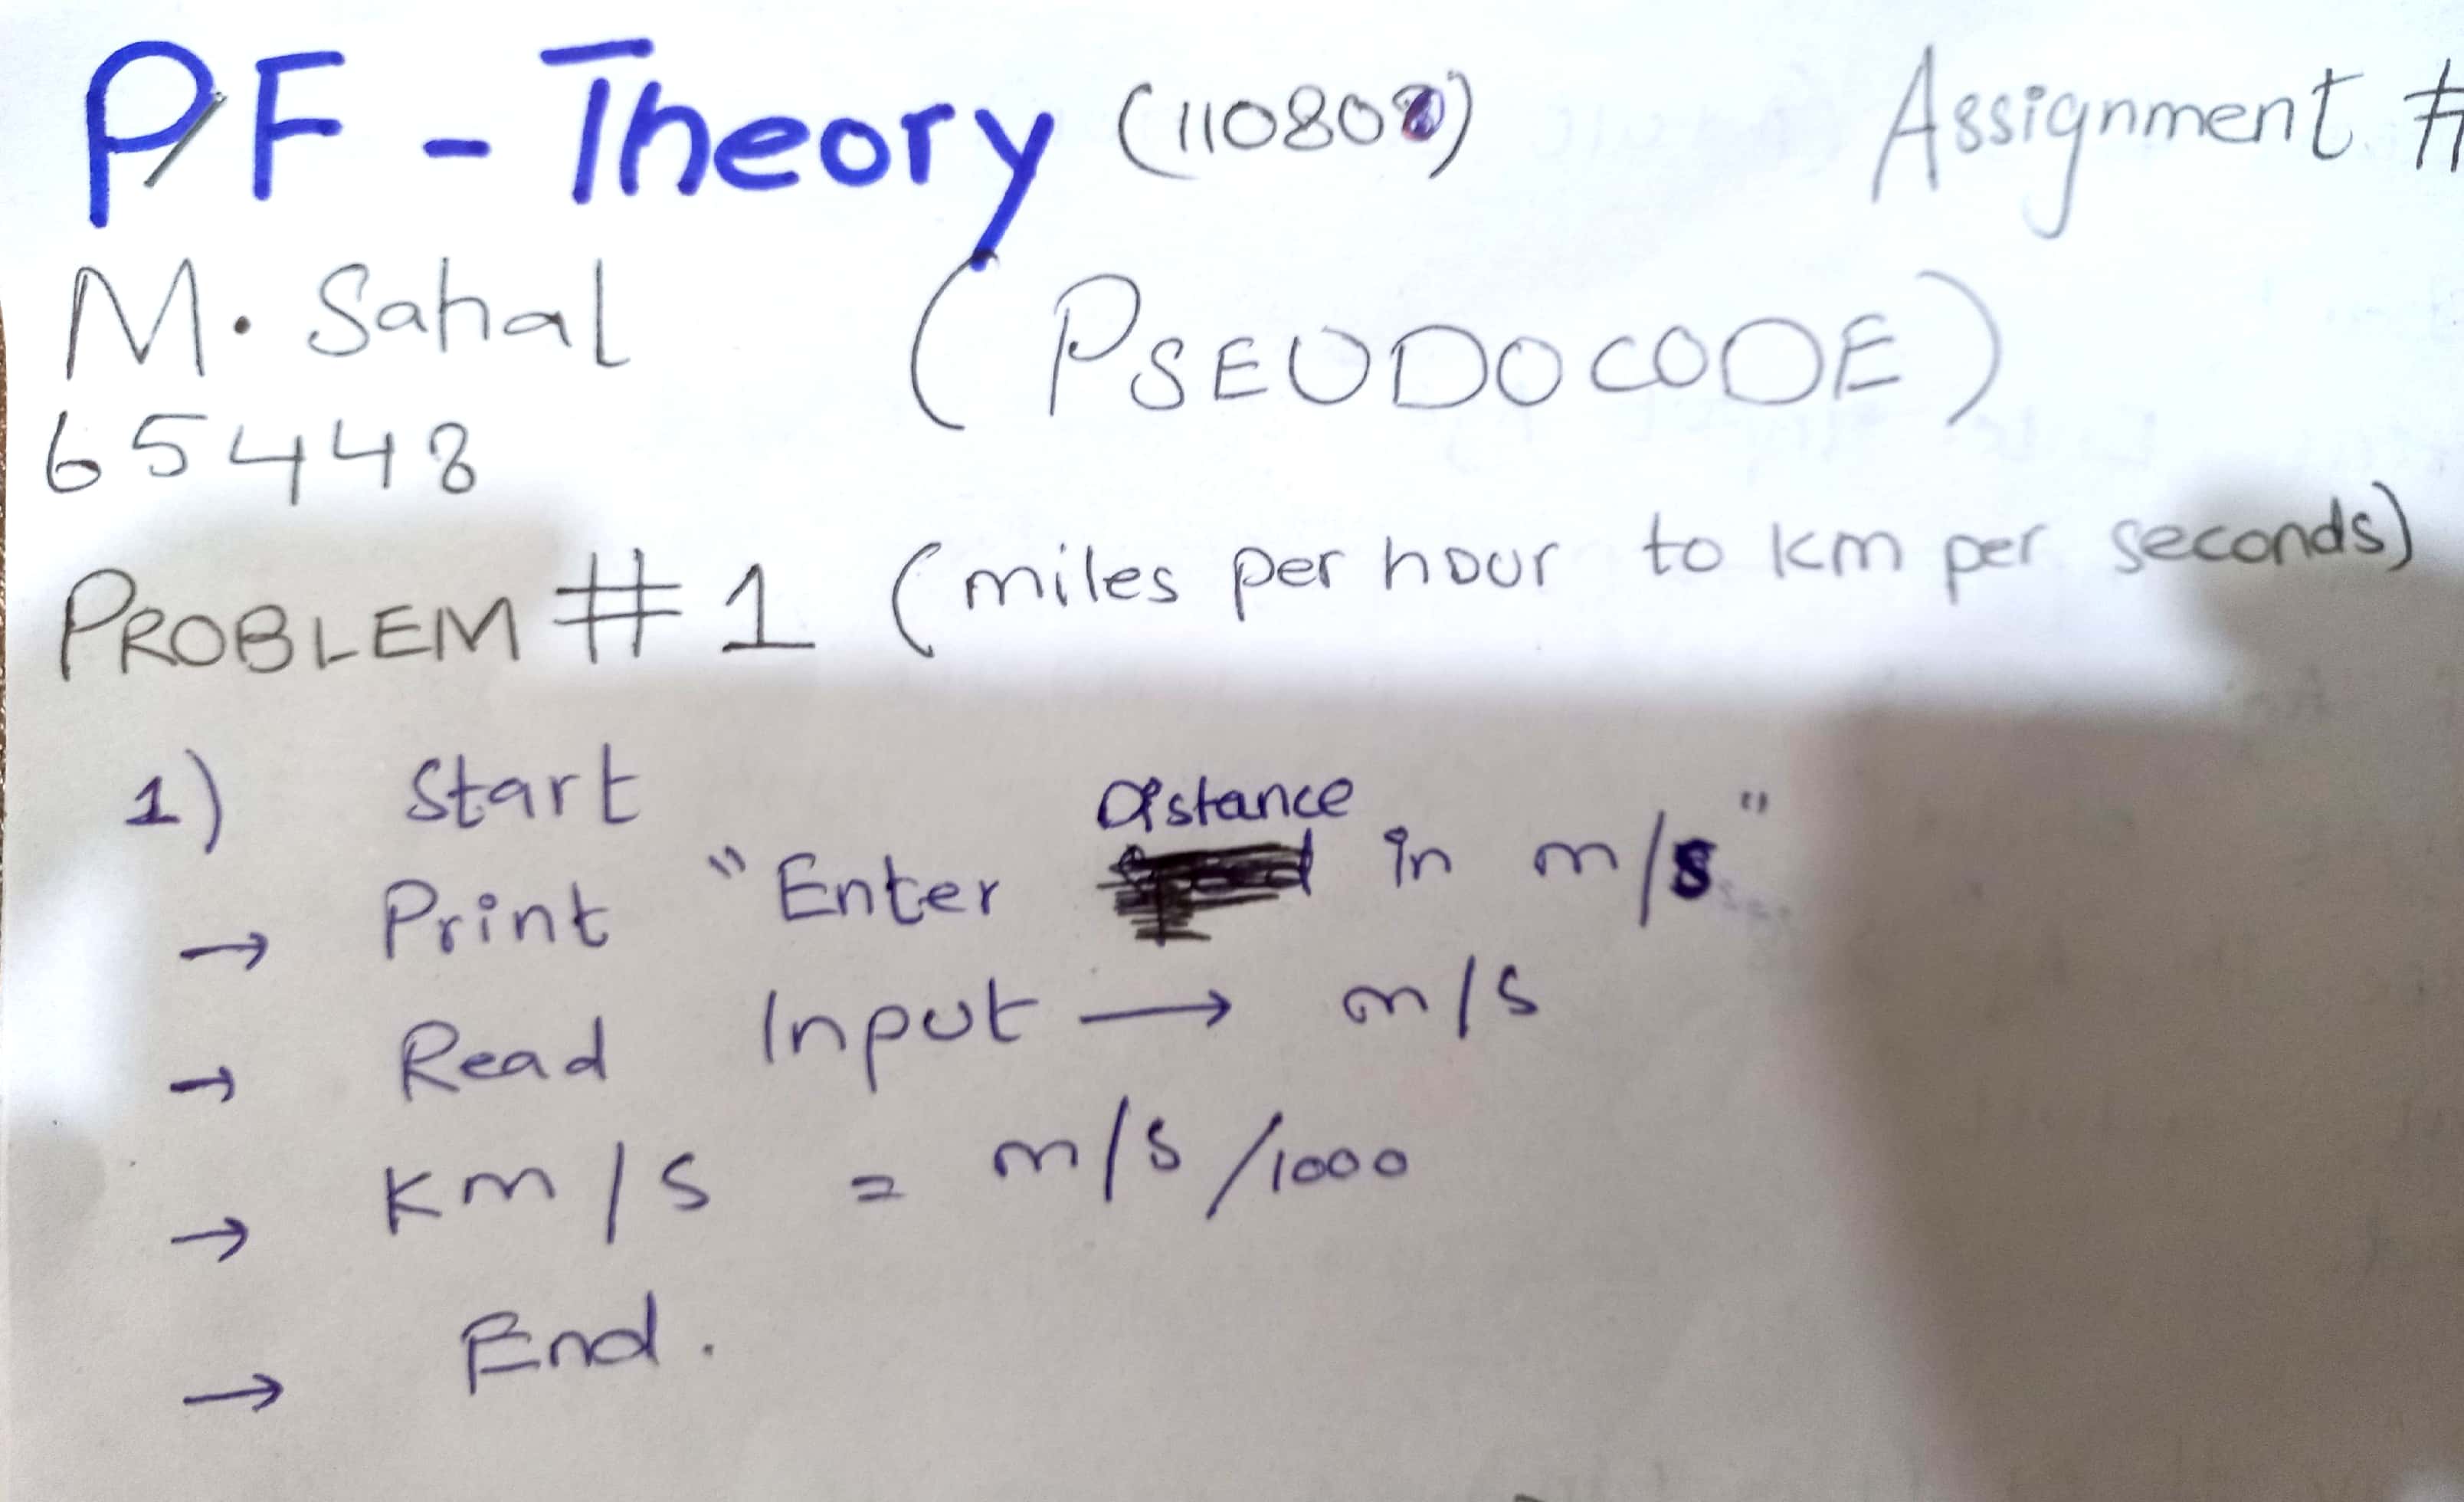 PF - Theory (110808) Assignment #
M. Sahal (PSEUDOCODE)
65448
PROBLEM # 1 (miles per hour to km per seconds)
1) Start
→ Print "Enter Distance in m/s"
→ Read Input → m/s
→ Km/s = m/s /1000
→ End.